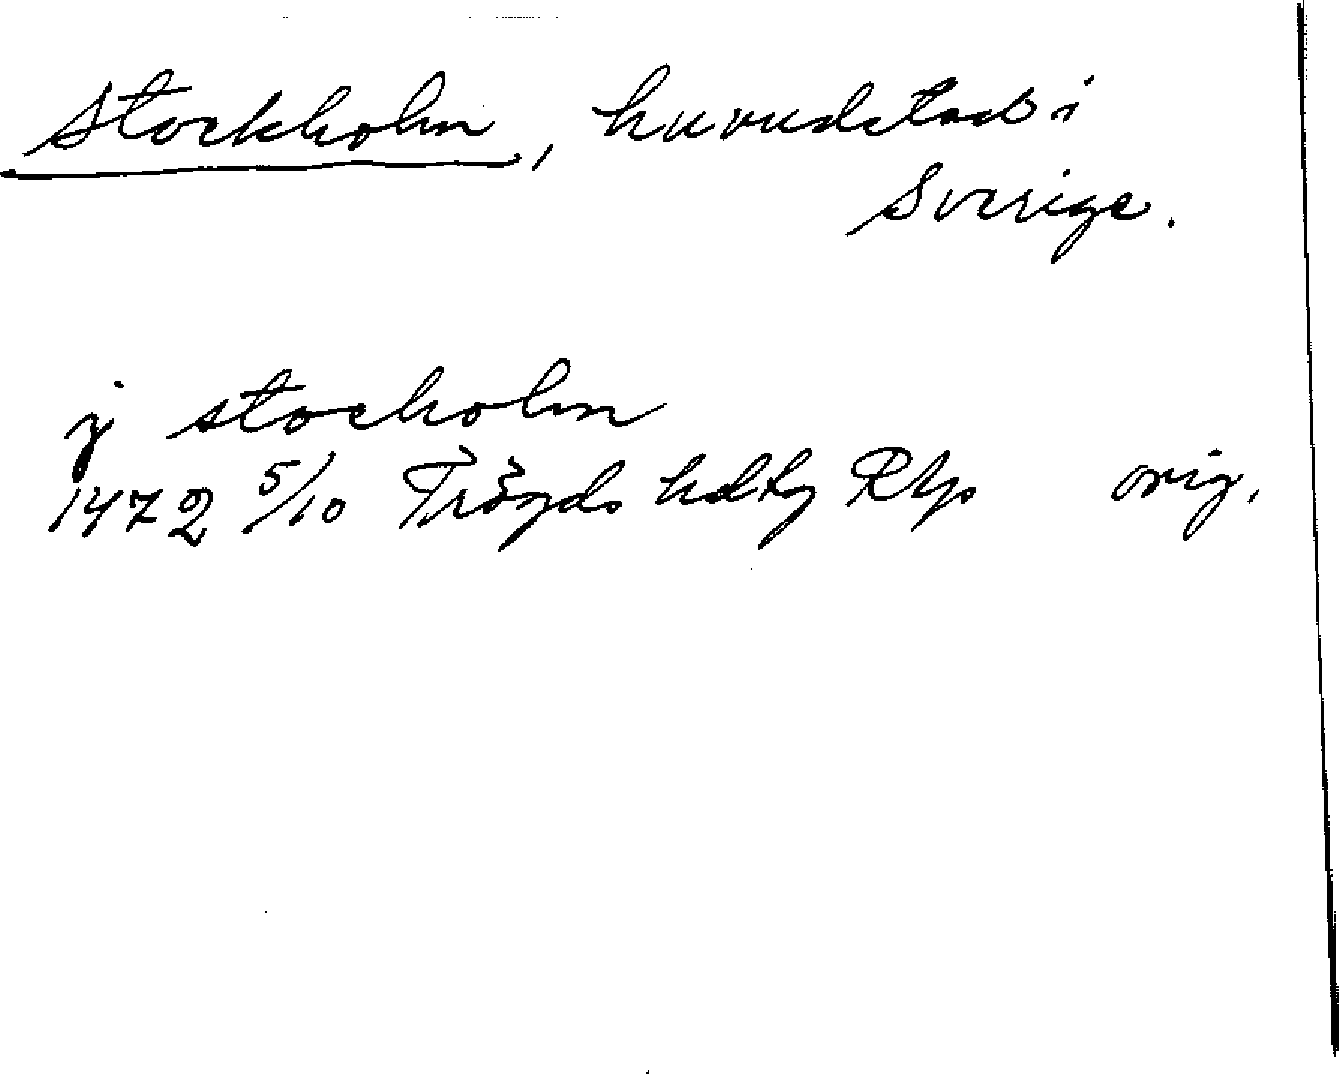 Stockholm, huvudstad i
Sverige.
j stocholm
1472 5/10 Trögds hdlg Rkp orig.